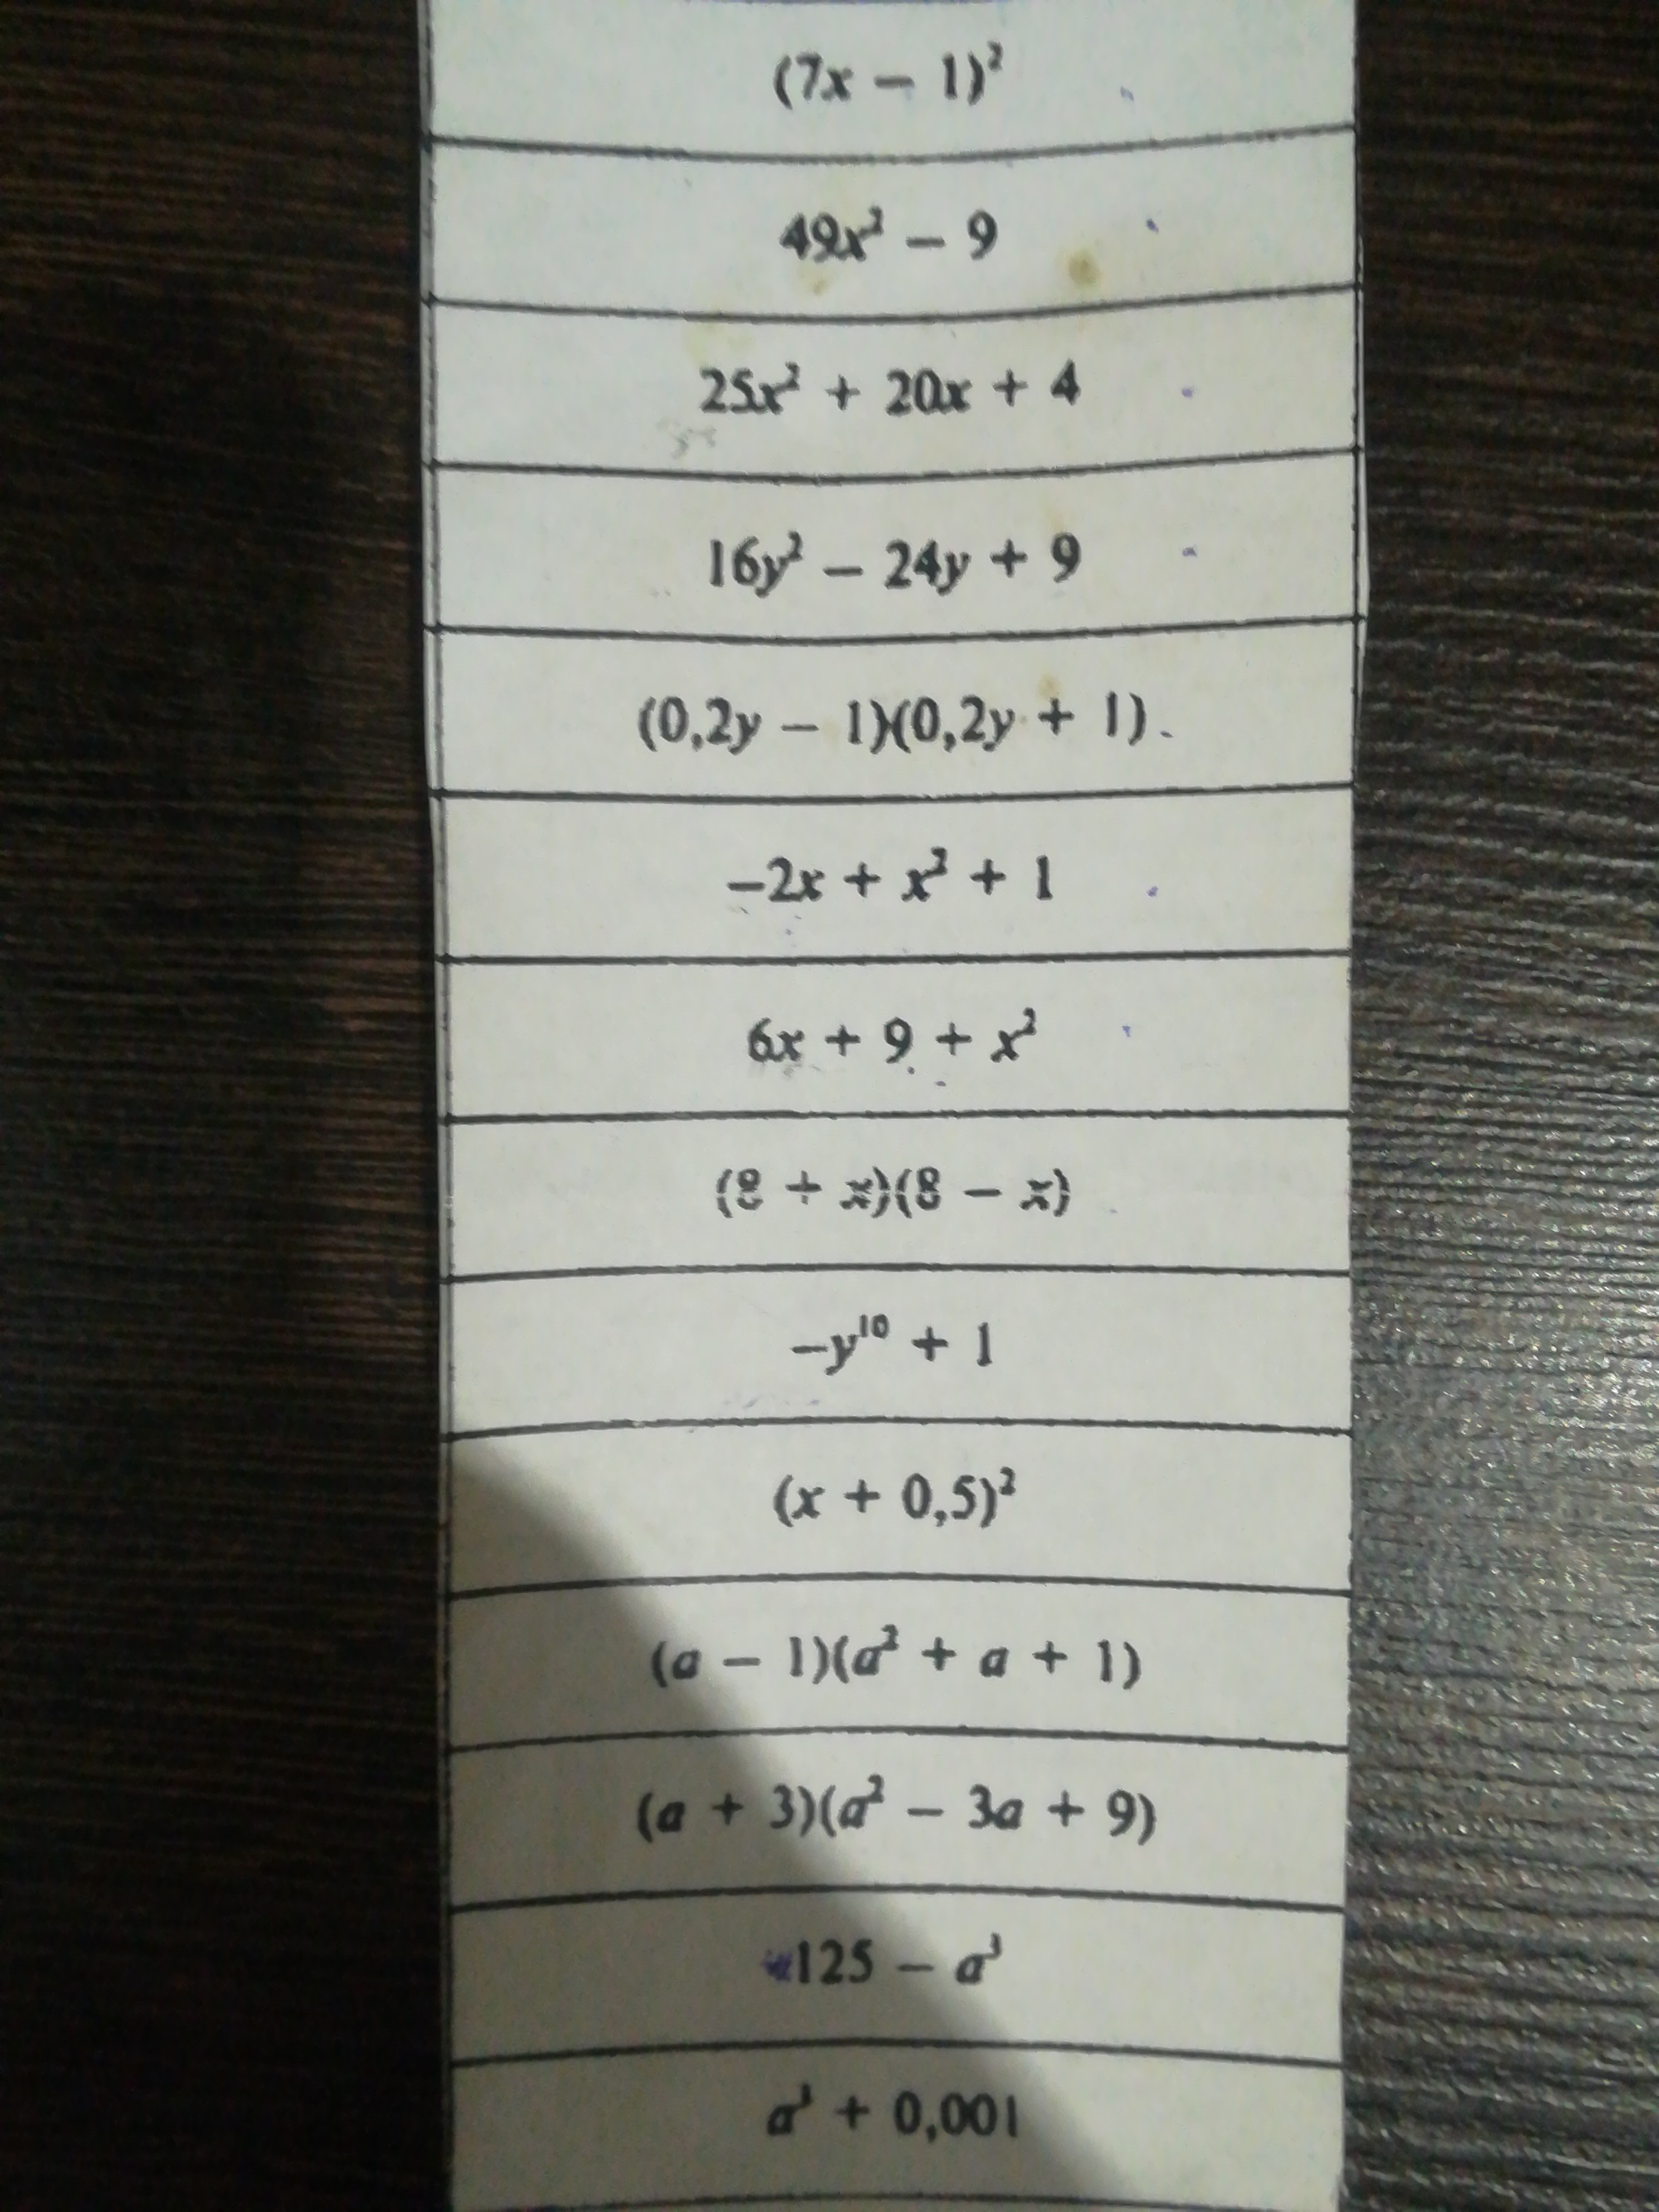 (7x − 1)²
49x² − 9
25x² + 20x + 4
16y² − 24y + 9
(0,2y − 1)(0,2y + 1)
−2x + x² + 1
6x + 9 + x²
(8 + x)(8 − x)
−y¹⁰ + 1
(x + 0,5)²
(a − 1)(a² + a + 1)
(a + 3)(a² − 3a + 9)
125 − a³
a³ + 0,001